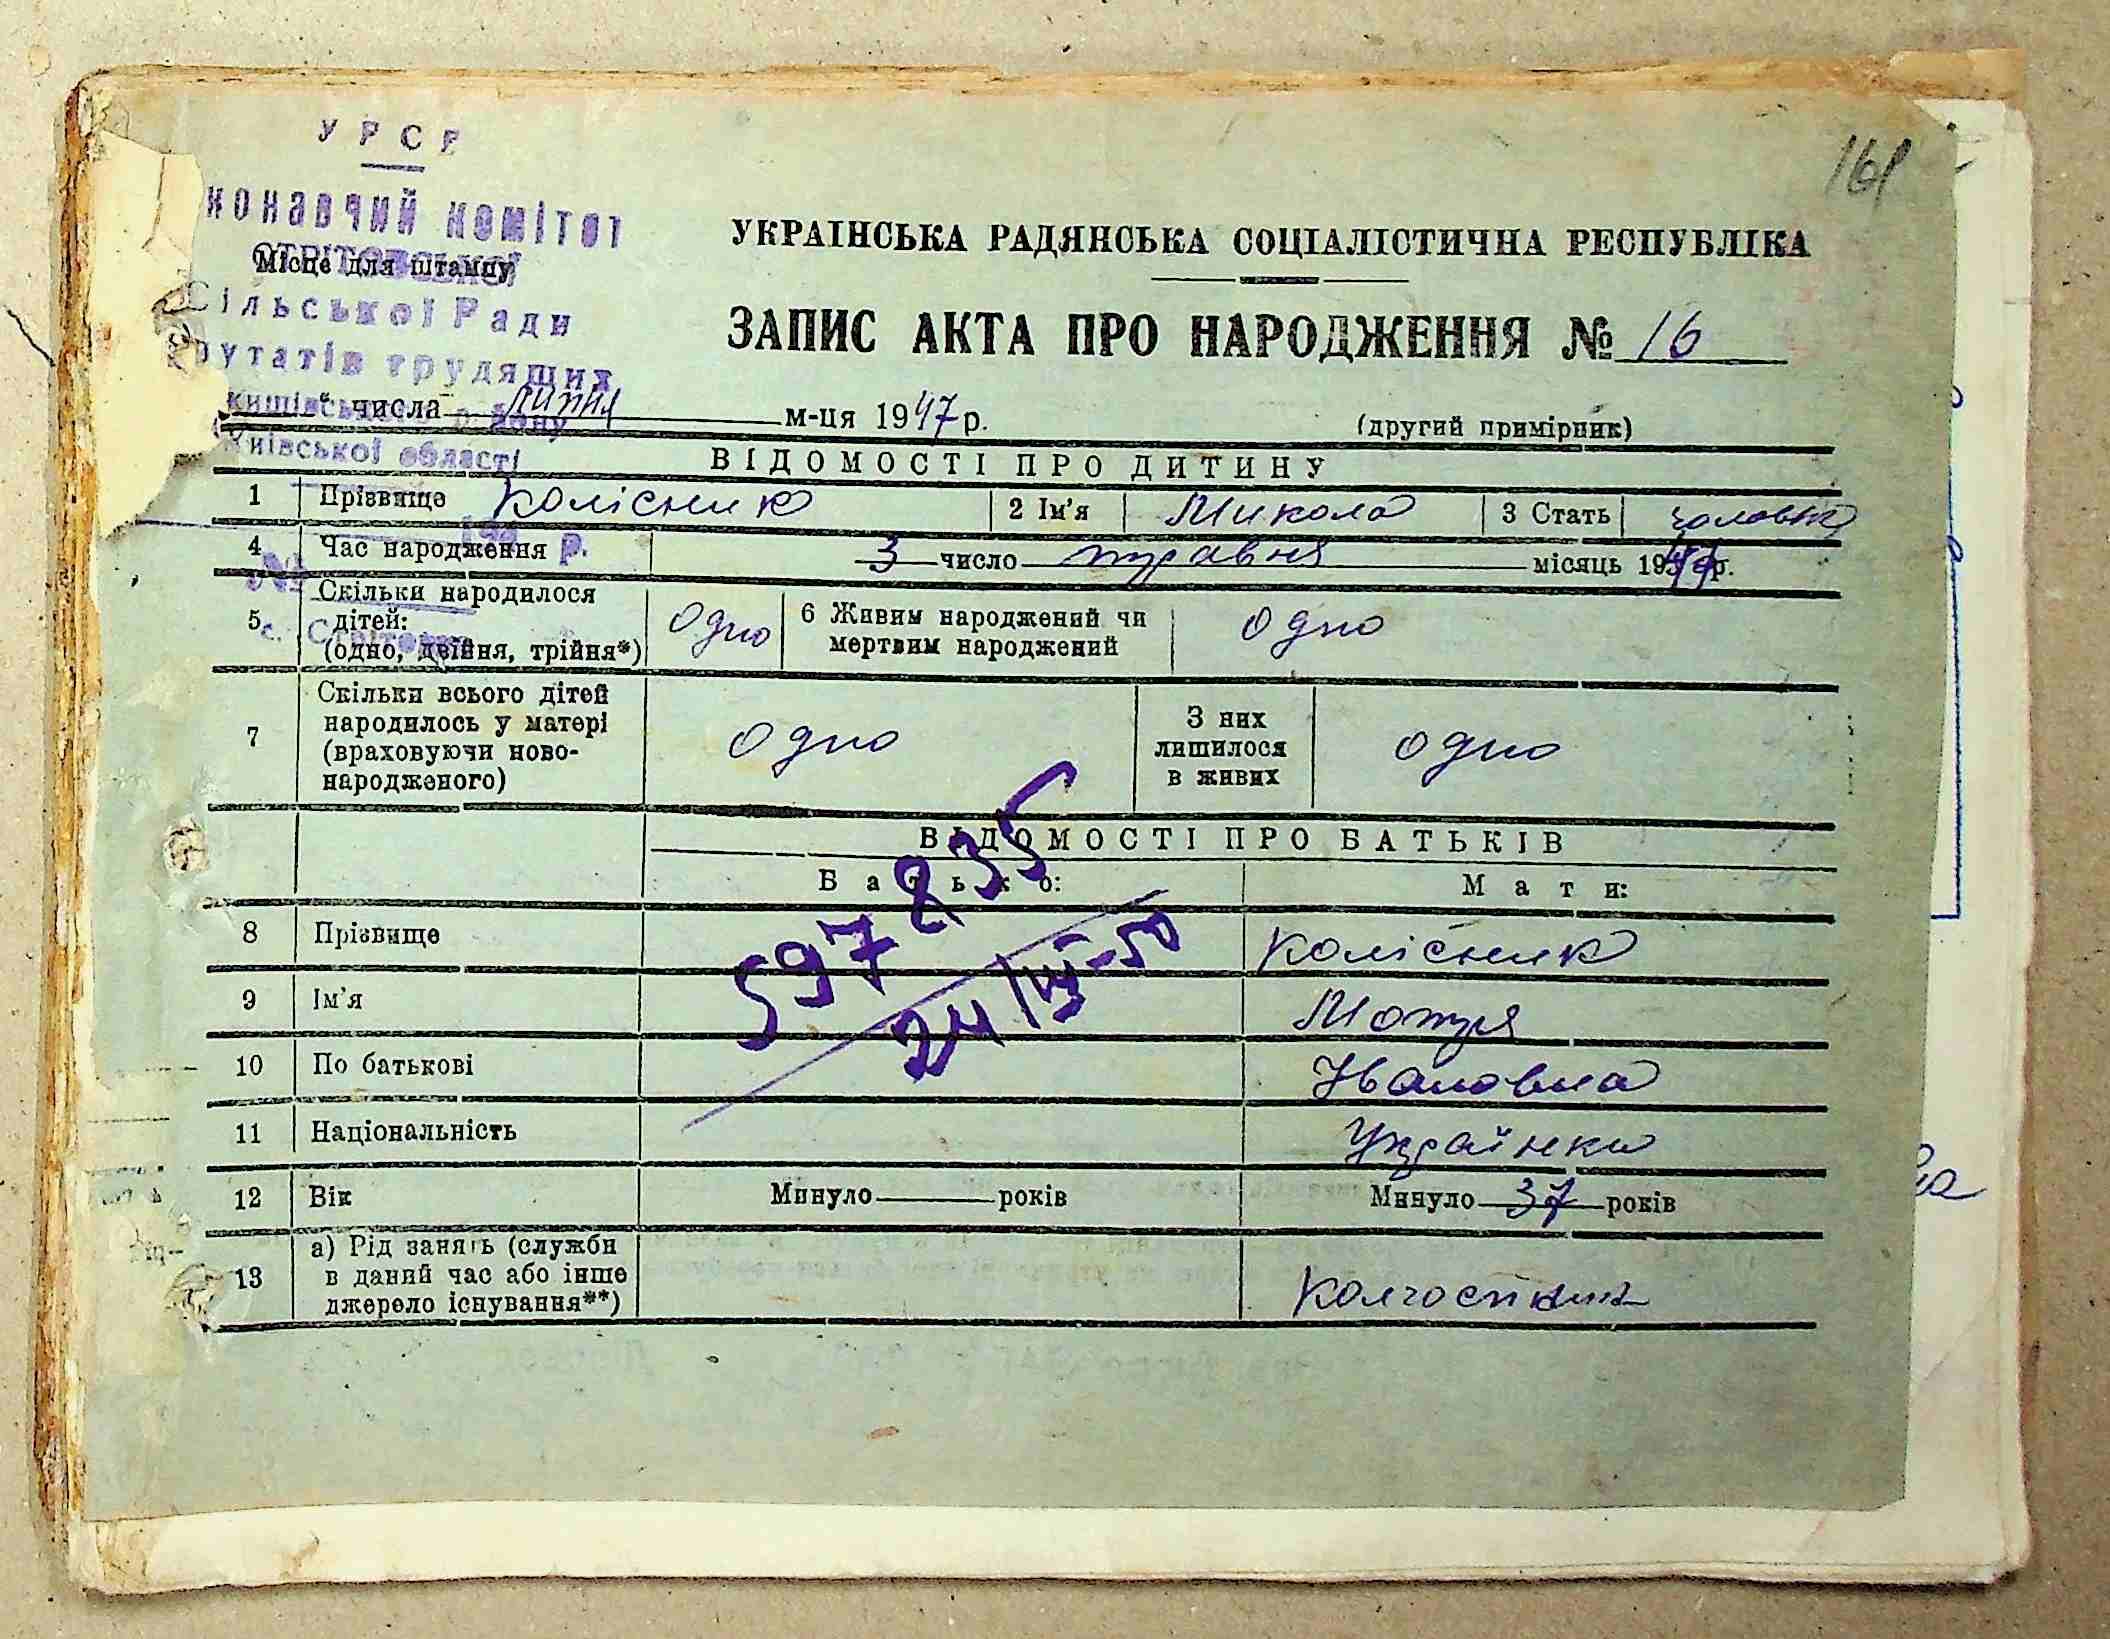 161
УРСР
конавчий комітет
Стрітовської
Місце для штампу
Сільської Ради
путатів трудящих
Київської області
УКРАЇНСЬКА РАДЯНСЬКА СОЦІАЛІСТИЧНА РЕСПУБЛІКА
ЗАПИС АКТА ПРО НАРОДЖЕННЯ № 16
" числа липня м-ця 1947 р.
(другий примірник)
ВІДОМОСТІ ПРО ДИТИНУ
1 Прізвище Колісник 2 Ім'я Микола 3 Стать
4 Час народження 3 число травня місяць 19 р.
5 Скільки народилося дітей: (одно, двійня, трійня*) Одно 6 Живим народжений чи мертвим народжений Одно
7 Скільки всього дітей народилось у матері (враховуючи новонародженого) Одно З них лишилося в живих Одно
ВІДОМОСТІ ПРО БАТЬКІВ
Батько: Мати:
597835
24/III-50
8 Прізвище Колісник
9 Ім'я Мотря
10 По батькові Івановна
11 Національність Українка
12 Вік Минуло років Минуло 37 років
13 а) Рід занять (служби в даний час або інше джерело існування**) Колгоспниця